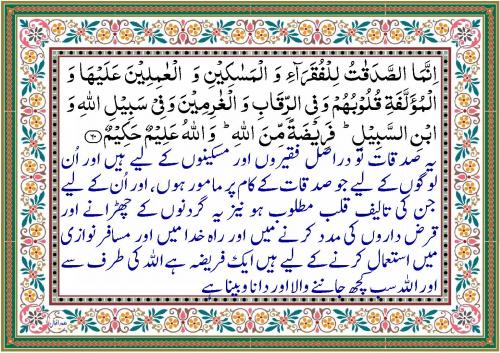 اِنَّمَا الصَّدَقٰتُ لِلْفُقَرَآءِ وَ الْمَسٰكِيْنِ وَ الْعٰمِلِيْنَ عَلَيْهَا وَ
الْمُؤَلَّفَةِ قُلُوْبُهُمْ وَ فِي الرِّقَابِ وَ الْغٰرِمِيْنَ وَ فِيْ سَبِيْلِ اللّٰهِ وَ
ابْنِ السَّبِيْلِ ؕ فَرِيْضَةً مِّنَ اللّٰهِ ؕ وَ اللّٰهُ عَلِيْمٌ حَكِيْمٌ ﴿۶۰﴾
یہ صدقات تو دراصل فقیروں اور مسکینوں کے لیے ہیں اور اُن
لوگوں کے لیے جو صدقات کے کام پر مامور ہوں، اور اُن کے لیے
جن کی تالیف قلب مطلوب ہو نیز یہ گردنوں کے چھڑانے اور
قرض داروں کی مدد کرنے میں اور راہ خدا میں اور مسافر نوازی
میں استعمال کرنے کے لیے ہیں ایک فریضہ ہے اللہ کی طرف سے
اور اللہ سب کچھ جاننے والا اور دانا و بینا ہے